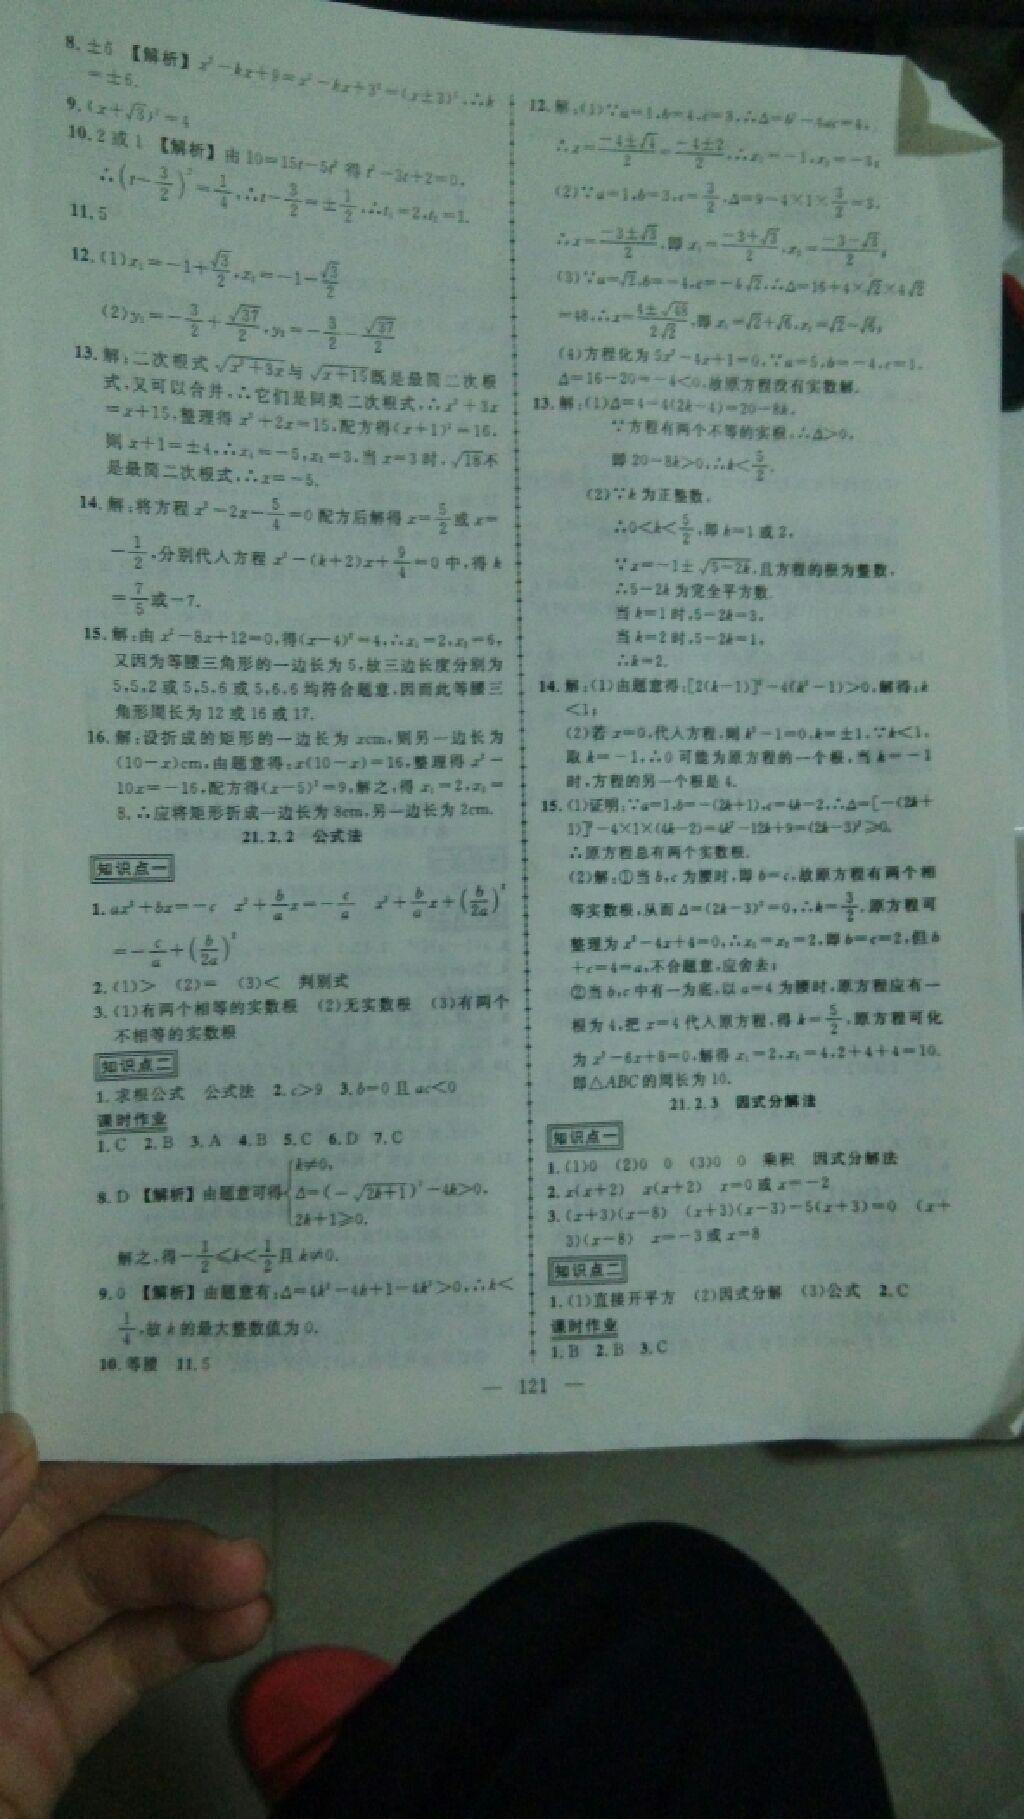 8.±6 【解析】x²-kx+9=x²-kx+3²=(x±3)²,∴k
=±6.
9.(x+√3)²=4
10.2或1 【解析】由10=15t-5t²得t²-3t+2=0,
∴(t-3/2)²=1/4,∴t-3/2=±1/2,∴t₁=2,t₂=1.
11.5
12.(1)x₁=-1+√3/2,x₂=-1-√3/2
(2)y₁=-3/2+√37/2,y₂=-3/2-√37/2
13.解:二次根式√(x²+3x)与√(x+15)既是最简二次根
式,又可以合并,∴它们是同类二次根式,∴x²+3x
=x+15,整理得x²+2x=15,配方得(x+1)²=16,
则x+1=±4,∴x₁=-5,x₂=3,当x=3时,√18不
是最简二次根式,∴x=-5.
14.解:将方程x²-2x-5/4=0配方后解得x=5/2或x=
-1/2,分别代入方程x²-(k+2)x+9/4=0中,得k
=7/5或-7.
15.解:由x²-8x+12=0,得(x-4)²=4,∴x₁=2,x₂=6,
又因为等腰三角形的一边长为5,故三边长度分别为
5,5,2或5,5,6或5,6,6均符合题意,因而此等腰三
角形周长为12或16或17.
16.解:设折成的矩形的一边长为xcm,则另一边长为
(10-x)cm,由题意得:x(10-x)=16,整理得x²-
10x=-16,配方得(x-5)²=9,解之,得x₁=2,x₂=
8,∴应将矩形折成一边长为8cm,另一边长为2cm.
21.2.2 公式法
知识点一
1.ax²+bx=-c x²+b/a x=-c/a x²+b/a x+(b/2a)²
=-c/a+(b/2a)²
2.(1)> (2)= (3)< 判别式
3.(1)有两个相等的实数根 (2)无实数根 (3)有两个
不相等的实数根
知识点二
1.求根公式 公式法 2.c>9 3.b=0且ac<0
课时作业
1.C 2.B 3.A 4.B 5.C 6.D 7.C
8.D 【解析】由题意可得{k≠0,
Δ=(-√(2k+1))²-4k>0,
2k+1≥0.
解之,得-1/2≤k<1/2且k≠0.
9.0 【解析】由题意有:Δ=4k²-4k+1-4k²>0,∴k<
1/4,故k的最大整数值为0.
10.等腰 11.5
12.解:(1)∵a=1,b=4,c=3,∴Δ=b²-4ac=4,
∴x=(-4±√4)/2=(-4±2)/2,∴x₁=-1,x₂=-3;
(2)∵a=1,b=3,c=3/2,Δ=9-4×1×3/2=3,
∴x=(-3±√3)/2,即x₁=(-3+√3)/2,x₂=(-3-√3)/2;
(3)∵a=√2,b=-4,c=-4√2,∴Δ=16+4×√2×4√2
=48,∴x=(4±√48)/2√2,即x₁=√2+√6,x₂=√2-√6;
(4)方程化为5x²-4x+1=0,∵a=5,b=-4,c=1,
Δ=16-20=-4<0,故原方程没有实数解.
13.解:(1)Δ=4-4(2k-4)=20-8k,
∵方程有两个不等的实根,∴Δ>0,
即20-8k>0,∴k<5/2.
(2)∵k为正整数,
∴0<k<5/2,即k=1或2,
∵x=-1±√(5-2k),且方程的根为整数,
∴5-2k为完全平方数.
当k=1时,5-2k=3,
当k=2时,5-2k=1,
∴k=2.
14.解:(1)由题意得:[2(k-1)]²-4(k²-1)>0,解得:k
<1;
(2)若x=0,代入方程,则k²-1=0,k=±1,∵k<1,
取k=-1,∴0可能为原方程的一个根,当k=-1
时,方程的另一个根是4.
15.(1)证明:∵a=1,b=-(2k+1),c=4k-2,∴Δ=[-(2k+
1)]²-4×1×(4k-2)=4k²-12k+9=(2k-3)²≥0,
∴原方程总有两个实数根.
(2)解:①当b,c为腰时,即b=c,故原方程有两个相
等实数根,从而Δ=(2k-3)²=0,∴k=3/2,原方程可
整理为x²-4x+4=0,∴x₁=x₂=2,即b=c=2,但b
+c=4=a,不合题意,应舍去;
②当b,c中有一为底,以a=4为腰时,原方程应有一
根为4,把x=4代入原方程,得k=5/2,原方程可化
为x²-6x+8=0,解得x₁=2,x₂=4,2+4+4=10.
即△ABC的周长为10.
21.2.3 因式分解法
知识点一
1.(1)0 (2)0 0 (3)0 0 乘积 因式分解法
2.x(x+2) x(x+2) x=0或x=-2
3.(x+3)(x-8) (x+3)(x-3)-5(x+3)=0 (x+
3)(x-8) x=-3或x=8
知识点二
1.(1)直接开平方 (2)因式分解 (3)公式 2.C
课时作业
1.B 2.B 3.C
— 121 —